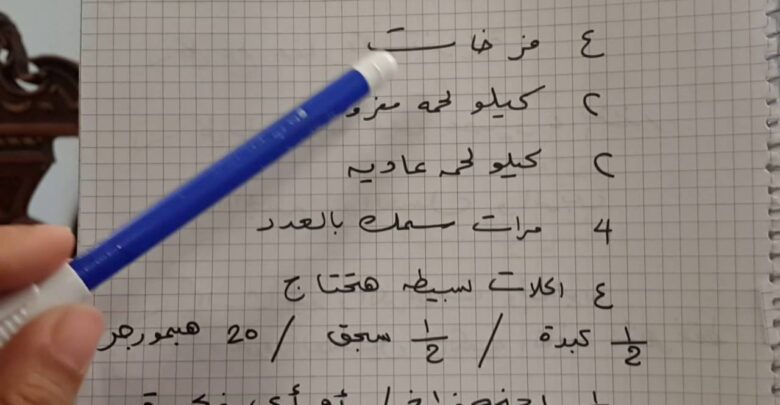 ٤ فرخات
٢ كيلو لحمه مفرو
٢ كيلو لحمه عاديه
4 مرات سمك بالعدد
٤ اكلات بسيطه هتحتاج
1/2 كبدة / 1/2 سجق / 20 همبورجر